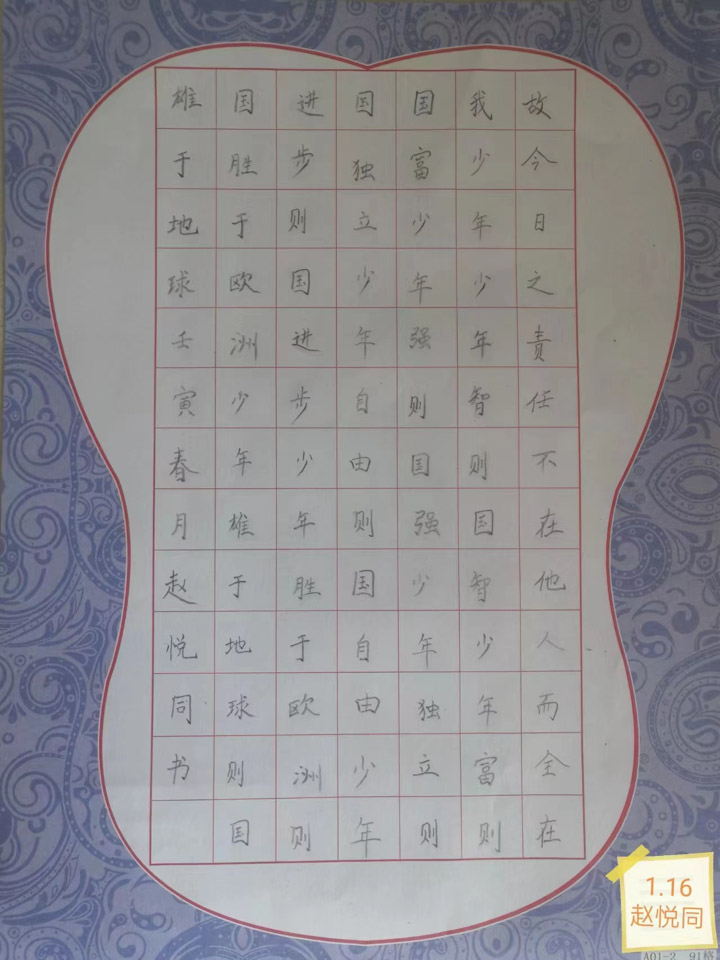 故今日之责任不在他人而全在
我少年少年智则国智少年富则
国富少年强则国强少年独立则
国独立少年自由则国自由少年
进步则国进步少年胜于欧洲则
国胜于欧洲少年雄于地球则国
雄于地球壬寅春月赵悦同书
1.16
赵悦同
A01-2 91格